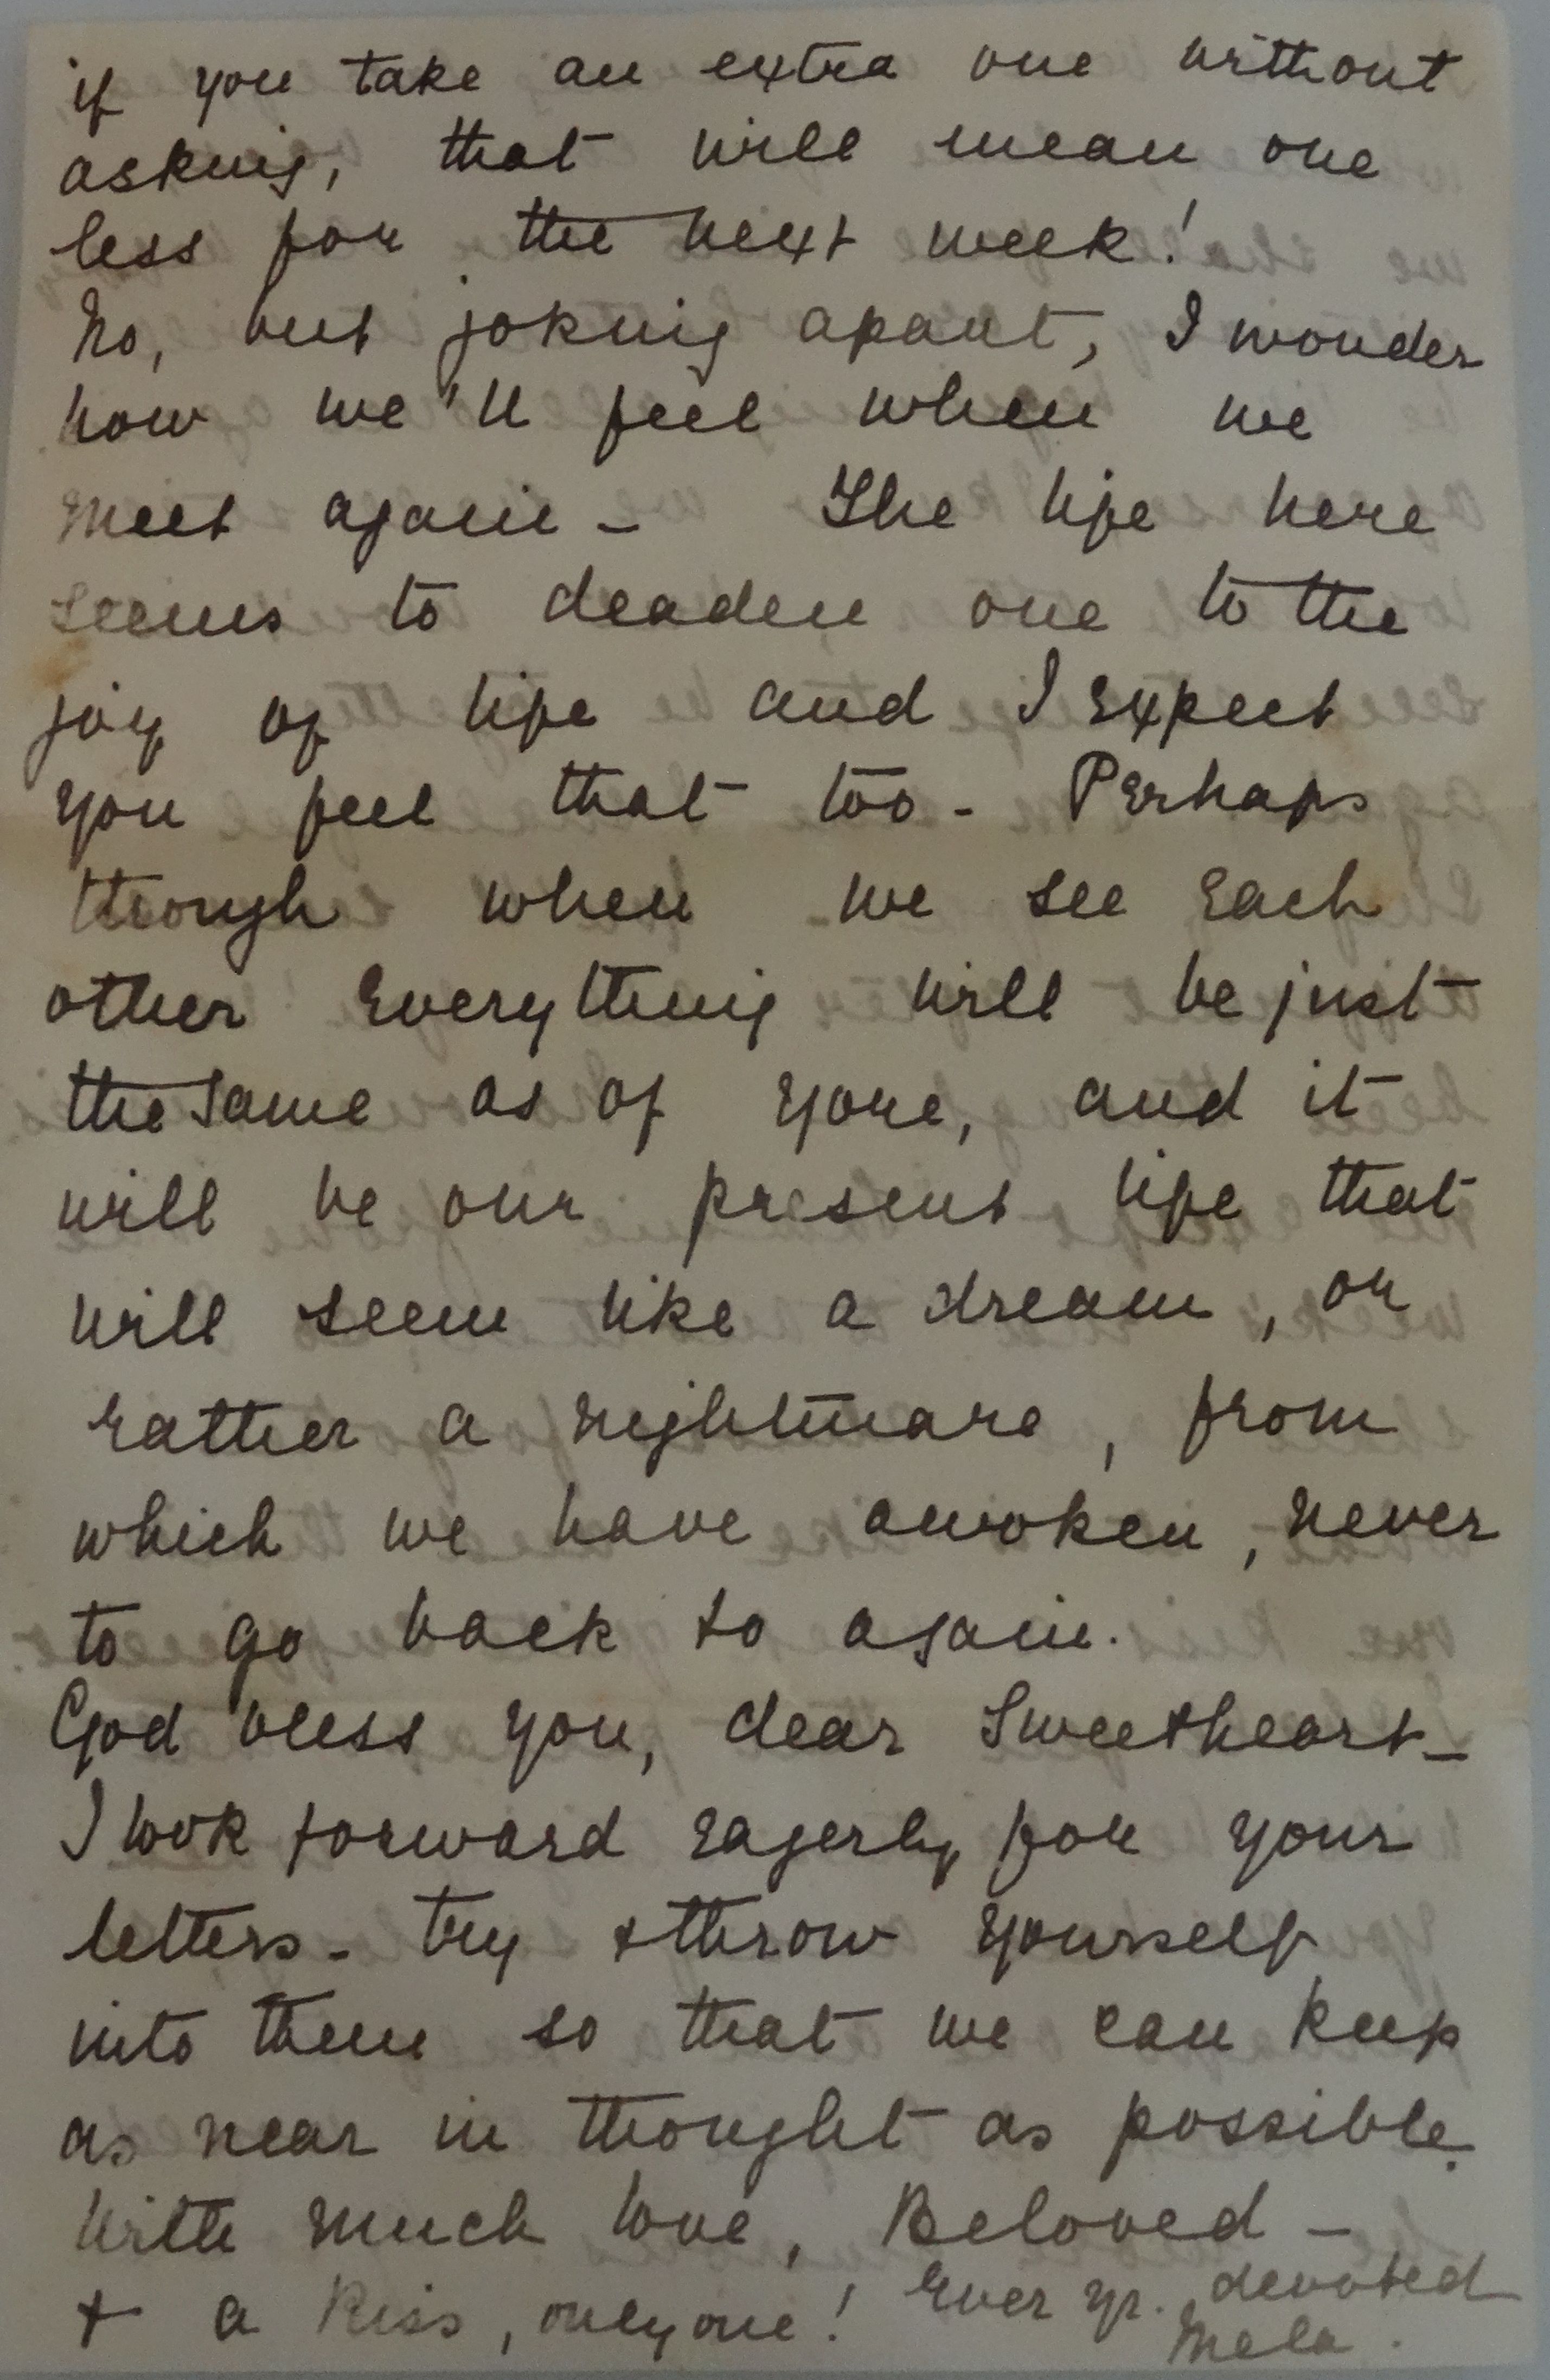 if you take an extra one without
asking, that will mean one
less for the next week!
No, but joking apart, I wonder
how we'll feel when we
meet again – The life here
seems to deaden one to the
joy of life and I expect
you feel that too – Perhaps
though when we see each
other everything will be just
the same as of yore, and it
will be our present life that
will seem like a dream, or
rather a nightmare, from
which we have awoken, never
to go back to again.
God bless you, dear Sweetheart –
I look forward eagerly for your
letters – try & throw yourself
into them so that we can keep
as near in thought as possible.
With much love, Beloved –
+ a kiss, only one! Ever yr. devoted
Mela.